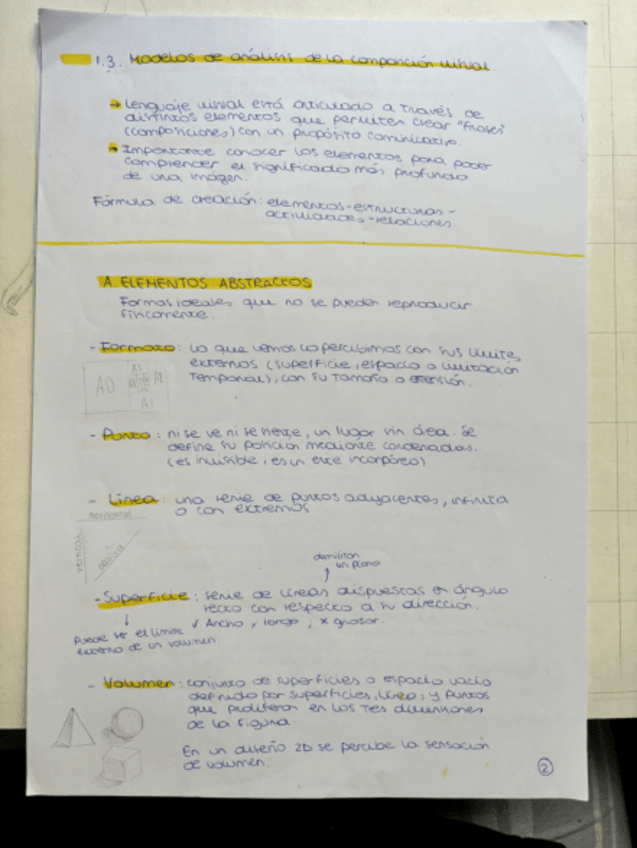 1.3. Modelos de análisis de la composición visual
→ Lenguaje visual está articulado a través de
distintos elementos que permiten crear "frases"
(composiciones) con un propósito comunicativo.
→ Importante conocer los elementos para poder
comprender el significado más profundo
de una imagen.
Fórmula de creación: elementos-estructuras-
actividades-relaciones.
A. ELEMENTOS ABSTRACTOS
Formas ideales que no se pueden reproducir
físicamente.
- Formato: lo que vemos lo percibimos con sus límites
externos (superficie, espacio o limitación
temporal), con su tamaño o extensión.
A0
A1
A1
A1
- Punto: ni se ve ni se mueve, un lugar sin área. Se
define su posición mediante coordenadas.
(es invisible, es un ente incorpóreo)
- Línea: una serie de puntos adyacentes, infinita
o con extremos
horizontal
vertical
oblicua
delimitan
un plano
- Superficie: serie de líneas dispuestas en ángulo
recto con respecto a su dirección.
✓ Ancho y largo, x grosor.
Puede ser el límite
externo de un volumen.
- Volumen: conjunto de superficies o espacio vacío
definido por superficies, líneas y puntos
que proliferan en las tres dimensiones
de la figura.
En un diseño 2D se percibe la sensación
de volumen.
2